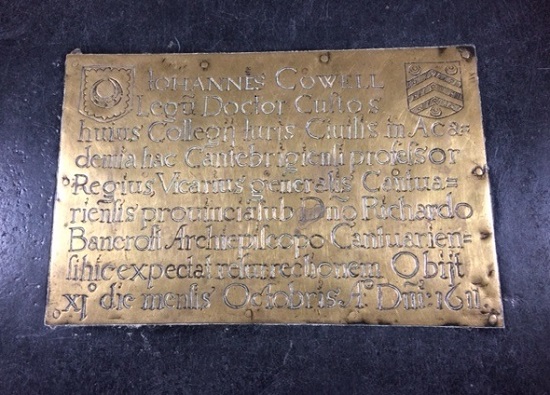 IOHANNES COWELL
Legū Doctor Cuſtos
huius Collegij Iuris Ciuilis in Aca=
demia hac Cantebrigienſi profeſsor
Regius Vicarius generalis Cātua=
rienſis prouincia ſub Dño Richardo
Bancroft Archiepiſcopo Cantuarien=
ſi hic expectat reſurrectionem Obijt
xjº die menſis Octobris. Dñi: 1611.